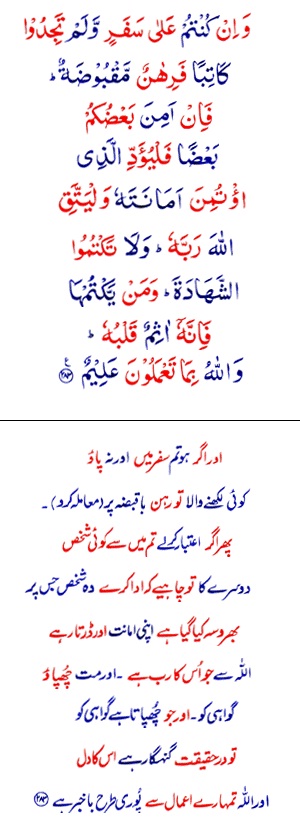 وَاِنْ كُنْتُمْ عَلٰى سَفَرٍ وَّلَمْ تَجِدُوْا
كَاتِبًا فَرِهٰنٌ مَّقْبُوْضَةٌ ؕ
فَاِنْ اَمِنَ بَعْضُكُمْ
بَعْضًا فَلْيُؤَدِّ الَّذِى
اؤْتُمِنَ اَمَانَتَهٗ وَلْيَتَّقِ
اللّٰهَ رَبَّهٗ ؕ وَلَا تَكْتُمُوا
الشَّهَادَةَ ؕ وَمَنْ يَّكْتُمْهَا
فَاِنَّهٗۤ اٰثِمٌ قَلْبُهٗ ؕ
وَاللّٰهُ بِمَا تَعْمَلُوْنَ عَلِيْمٌ ﴿۲۸۳﴾
اور اگر ہو تم سفر میں اور نہ پاؤ
کوئی لکھنے والا تو رہن باقبضہ پر (معاملہ کرو)۔
پھر اگر اعتبار کرلے تم میں سے کوئی شخص
دوسرے کا تو چاہیے کہ ادا کرے وہ شخص جس پر
بھروسہ کیا گیا ہے اپنی امانت اور ڈرتا رہے
اللہ سے جو اُس کا رب ہے ۔ اور مت چُھپاؤ
گواہی کو ۔ اور جو چُھپاتا ہے گواہی کو
تو در حقیقت گنہگار ہے اس کا دل
اور اللہ تمہارے اعمال سے پُوری طرح باخبر ہے ﴿۲۸۳﴾